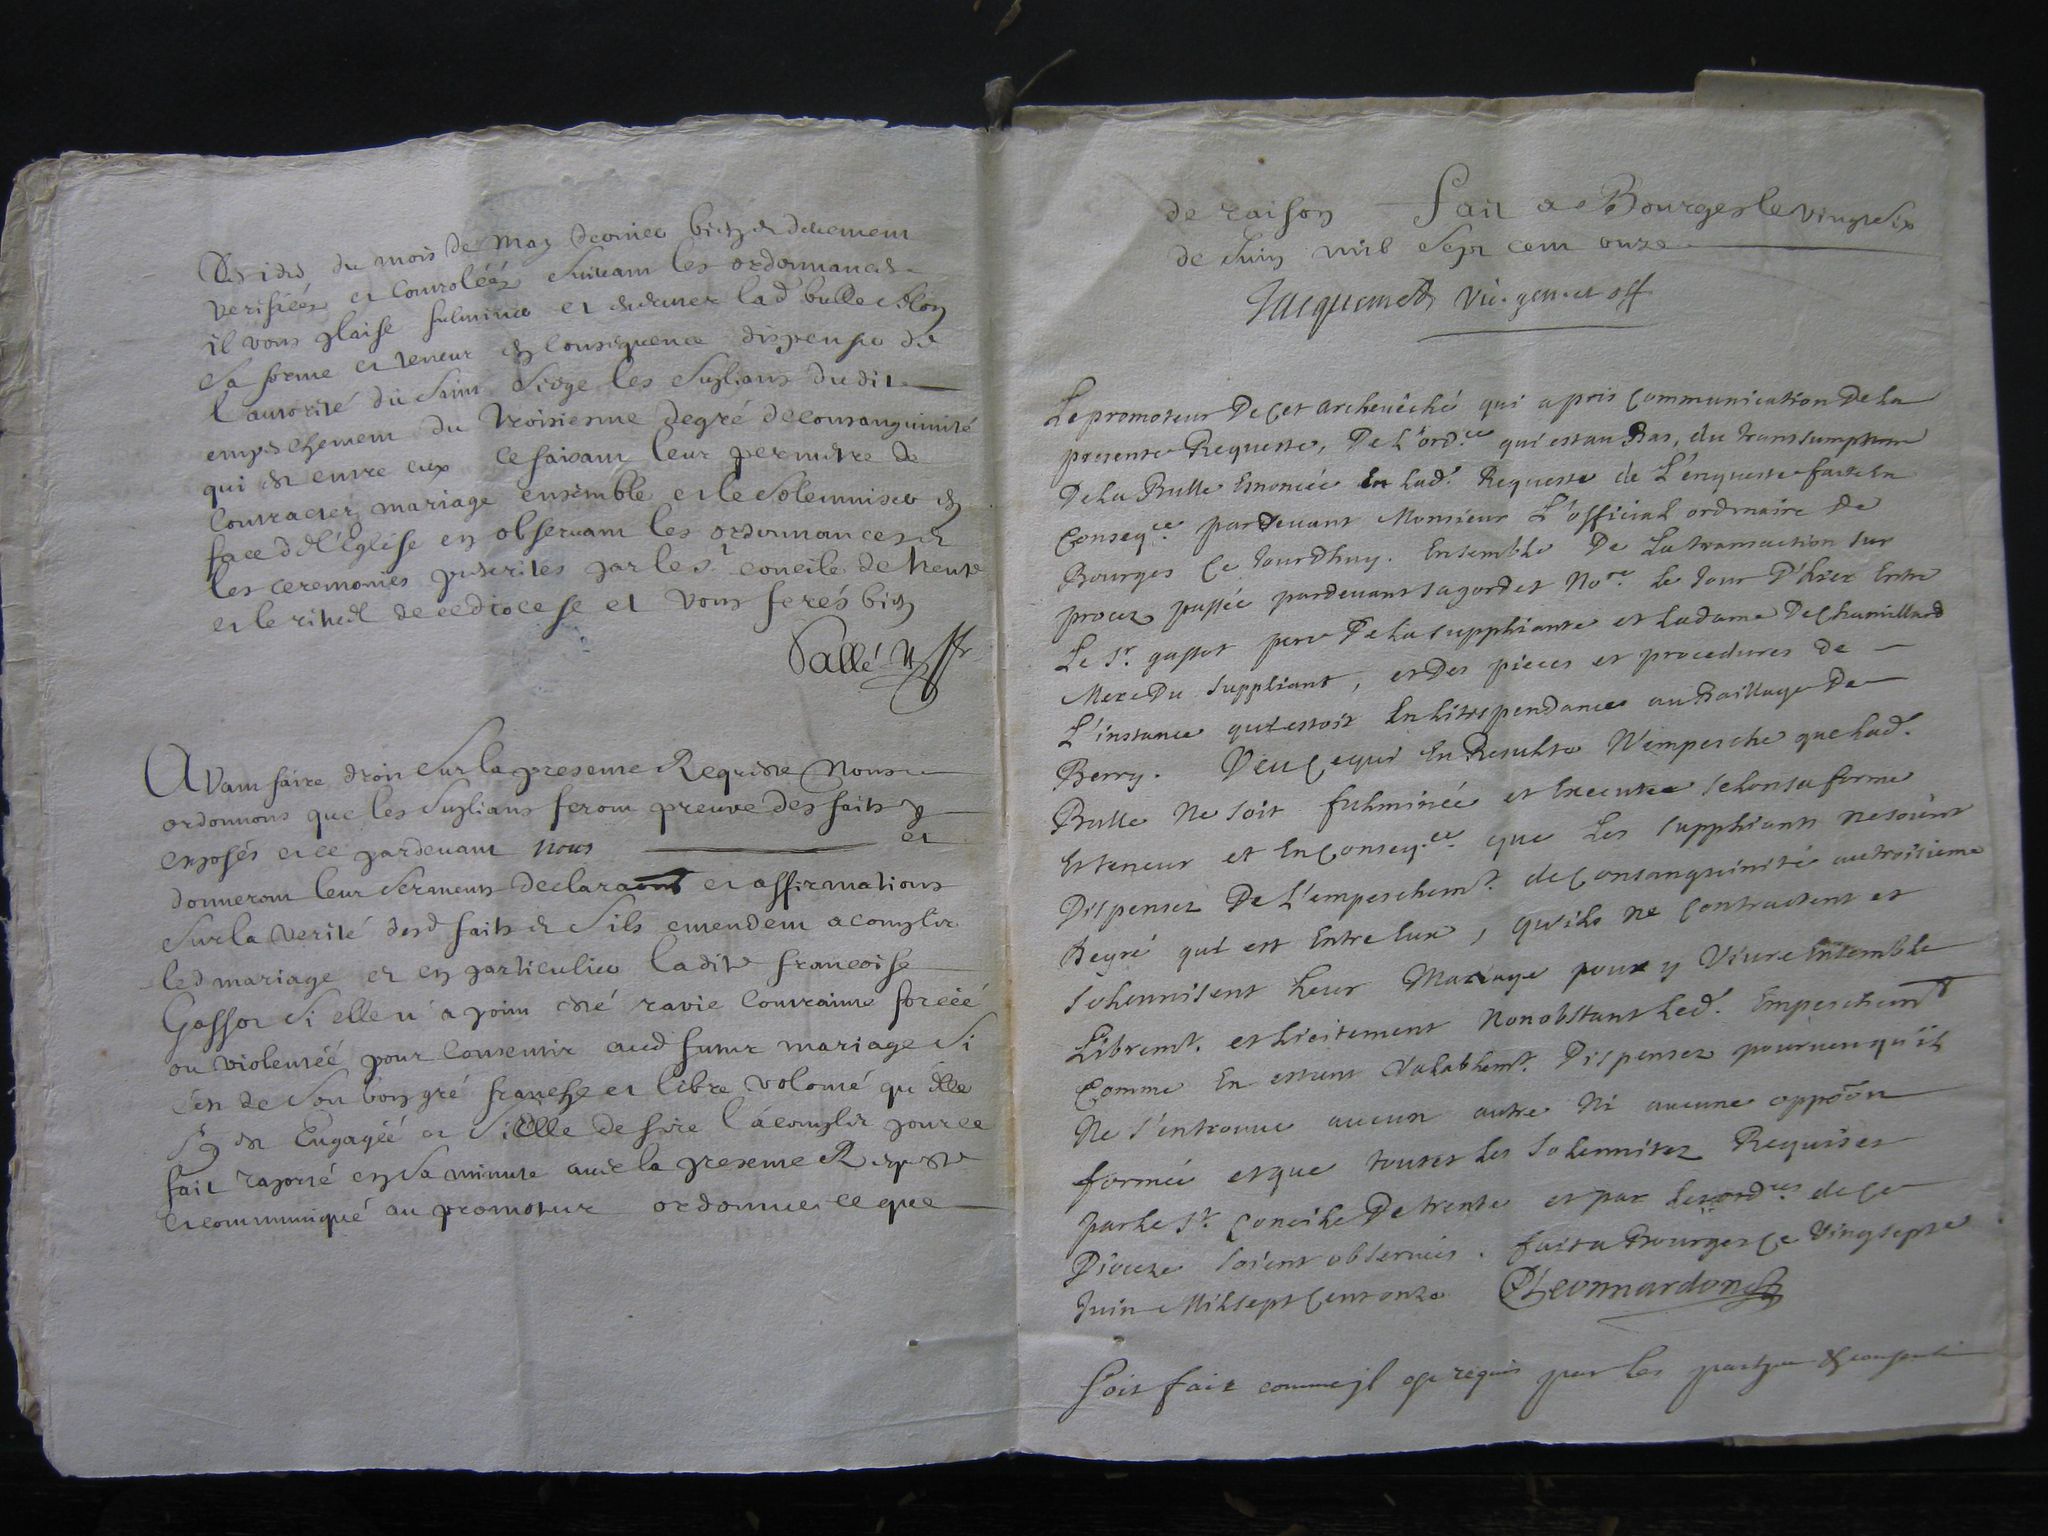 des ides du mois de may dernier bien et deuement
verifiées et controléés suivant les ordonnances
il vous plaise fulminer et enteriner lad bulle selon
sa forme et teneur en consequence dispenser de
l'autorité du Saint Siege les supliants dudit
empeschement du troisiesme degré de consanguinité
qui est entre eux ce faisant leur permettre de
contracter mariage ensemble et le solemniser en
face de l'Eglise en observant les ordonnances et
les ceremonies prescrites par le st concile de trente
et le rituel de ce diocese et vous ferés bien
Vallé
Avant faire droit sur la presente Requeste Nous
ordonnons que les supliants feront preuve des faits y
exposés et ce pardevant nous et
donneront leur serments declara et affirmations
sur la verité desd faits et s'ils entendent acomplir
led mariage et en particulier ladite francoise
Gassot si elle n'a point esté ravie contrainte forcéé
ou violentéé pour consentir aud futur mariage si
c'est de son bon gré franche et libre volonté qu'elle
s'y est Engagéé et si Elle desire l'acomplir pour ce
fait raporté en sa minute avec la presente Requeste
et communiqué au promoteur ordonner ce que
de raison fait a Bourges le vingt six
de Juin mil sept cent onze
Jacquemet vic. gen. et off
Le promoteur De cet archevêché qui a pris communication De La
presente Requeste, De L'ord.ce qui est au Bas, du transsumptum
De La Bulle Enoncée En Lad. Requeste de L'enqueste faite En
Conseq.ce pardevant Monsieur L'official ordinaire De
Bourges Ce Jourdhuy. Ensemble De La transaction sur
procez passée pardevant Sagordet No.re Le Jour D'hier Entre
Le Sr. gassot pere De La suppliante et La dame De Chamillard
Mere Du suppliant, et Des pieces et procedures de
L'instance qui estoit En Litispendance au Baillage De
Berry. Veu Ce qui En Resulte N'empesche que Lad.
Bulle Ne soit fulminée et Executée selon sa forme
Et teneur et En Conseq.ce que Les suppliants Ne soient
Dispensez De L'empeschemt. de Consanguinité au troisieme
Degré qui est Entre Eux, qu'ils Ne Contractent et
solennisent Leur Mariage pour y Vivre Ensemble
Libremt. et Licitement Nonobstant Led. Empeschemt
Comme En estant Valablemt. Dispensez pourveu qu'il
Ne s'en trouve aucun autre Ni aucune oppoõn
formée et que toutes Les solennitez Requises
par Le St. Concile De trente et par Les ord.ces de Ce
Dioceze soient observées. fait a Bourges Ce Vingt sept
Juin Mil sept Cent onze Leonnardon
soit fait comme il est requis par les parties et consenti